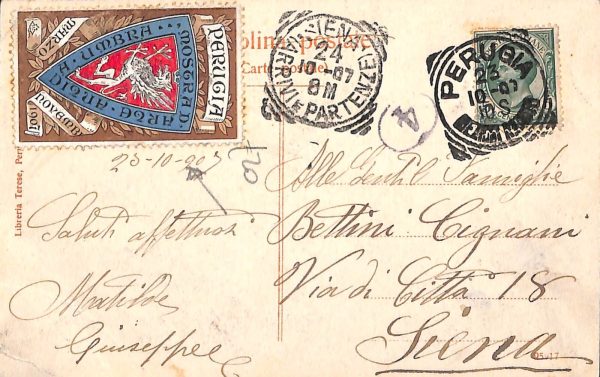 PERUGIA
MOSTRA D'
ARTE ANTICA
UMBRA
MARZO
1907
Cartolina postale
Carte postale
SIENA
24
10-07
8M
ARRIVI E PARTENZE
4
PERUGIA
23
10-07
Libreria Terese, Per
23-10-907
120
Saluti affettuosi
Matilde
Giuseppe
Alle Gentil Famiglie
Bettini Cignani
Via di Città 18
Siena
05-17